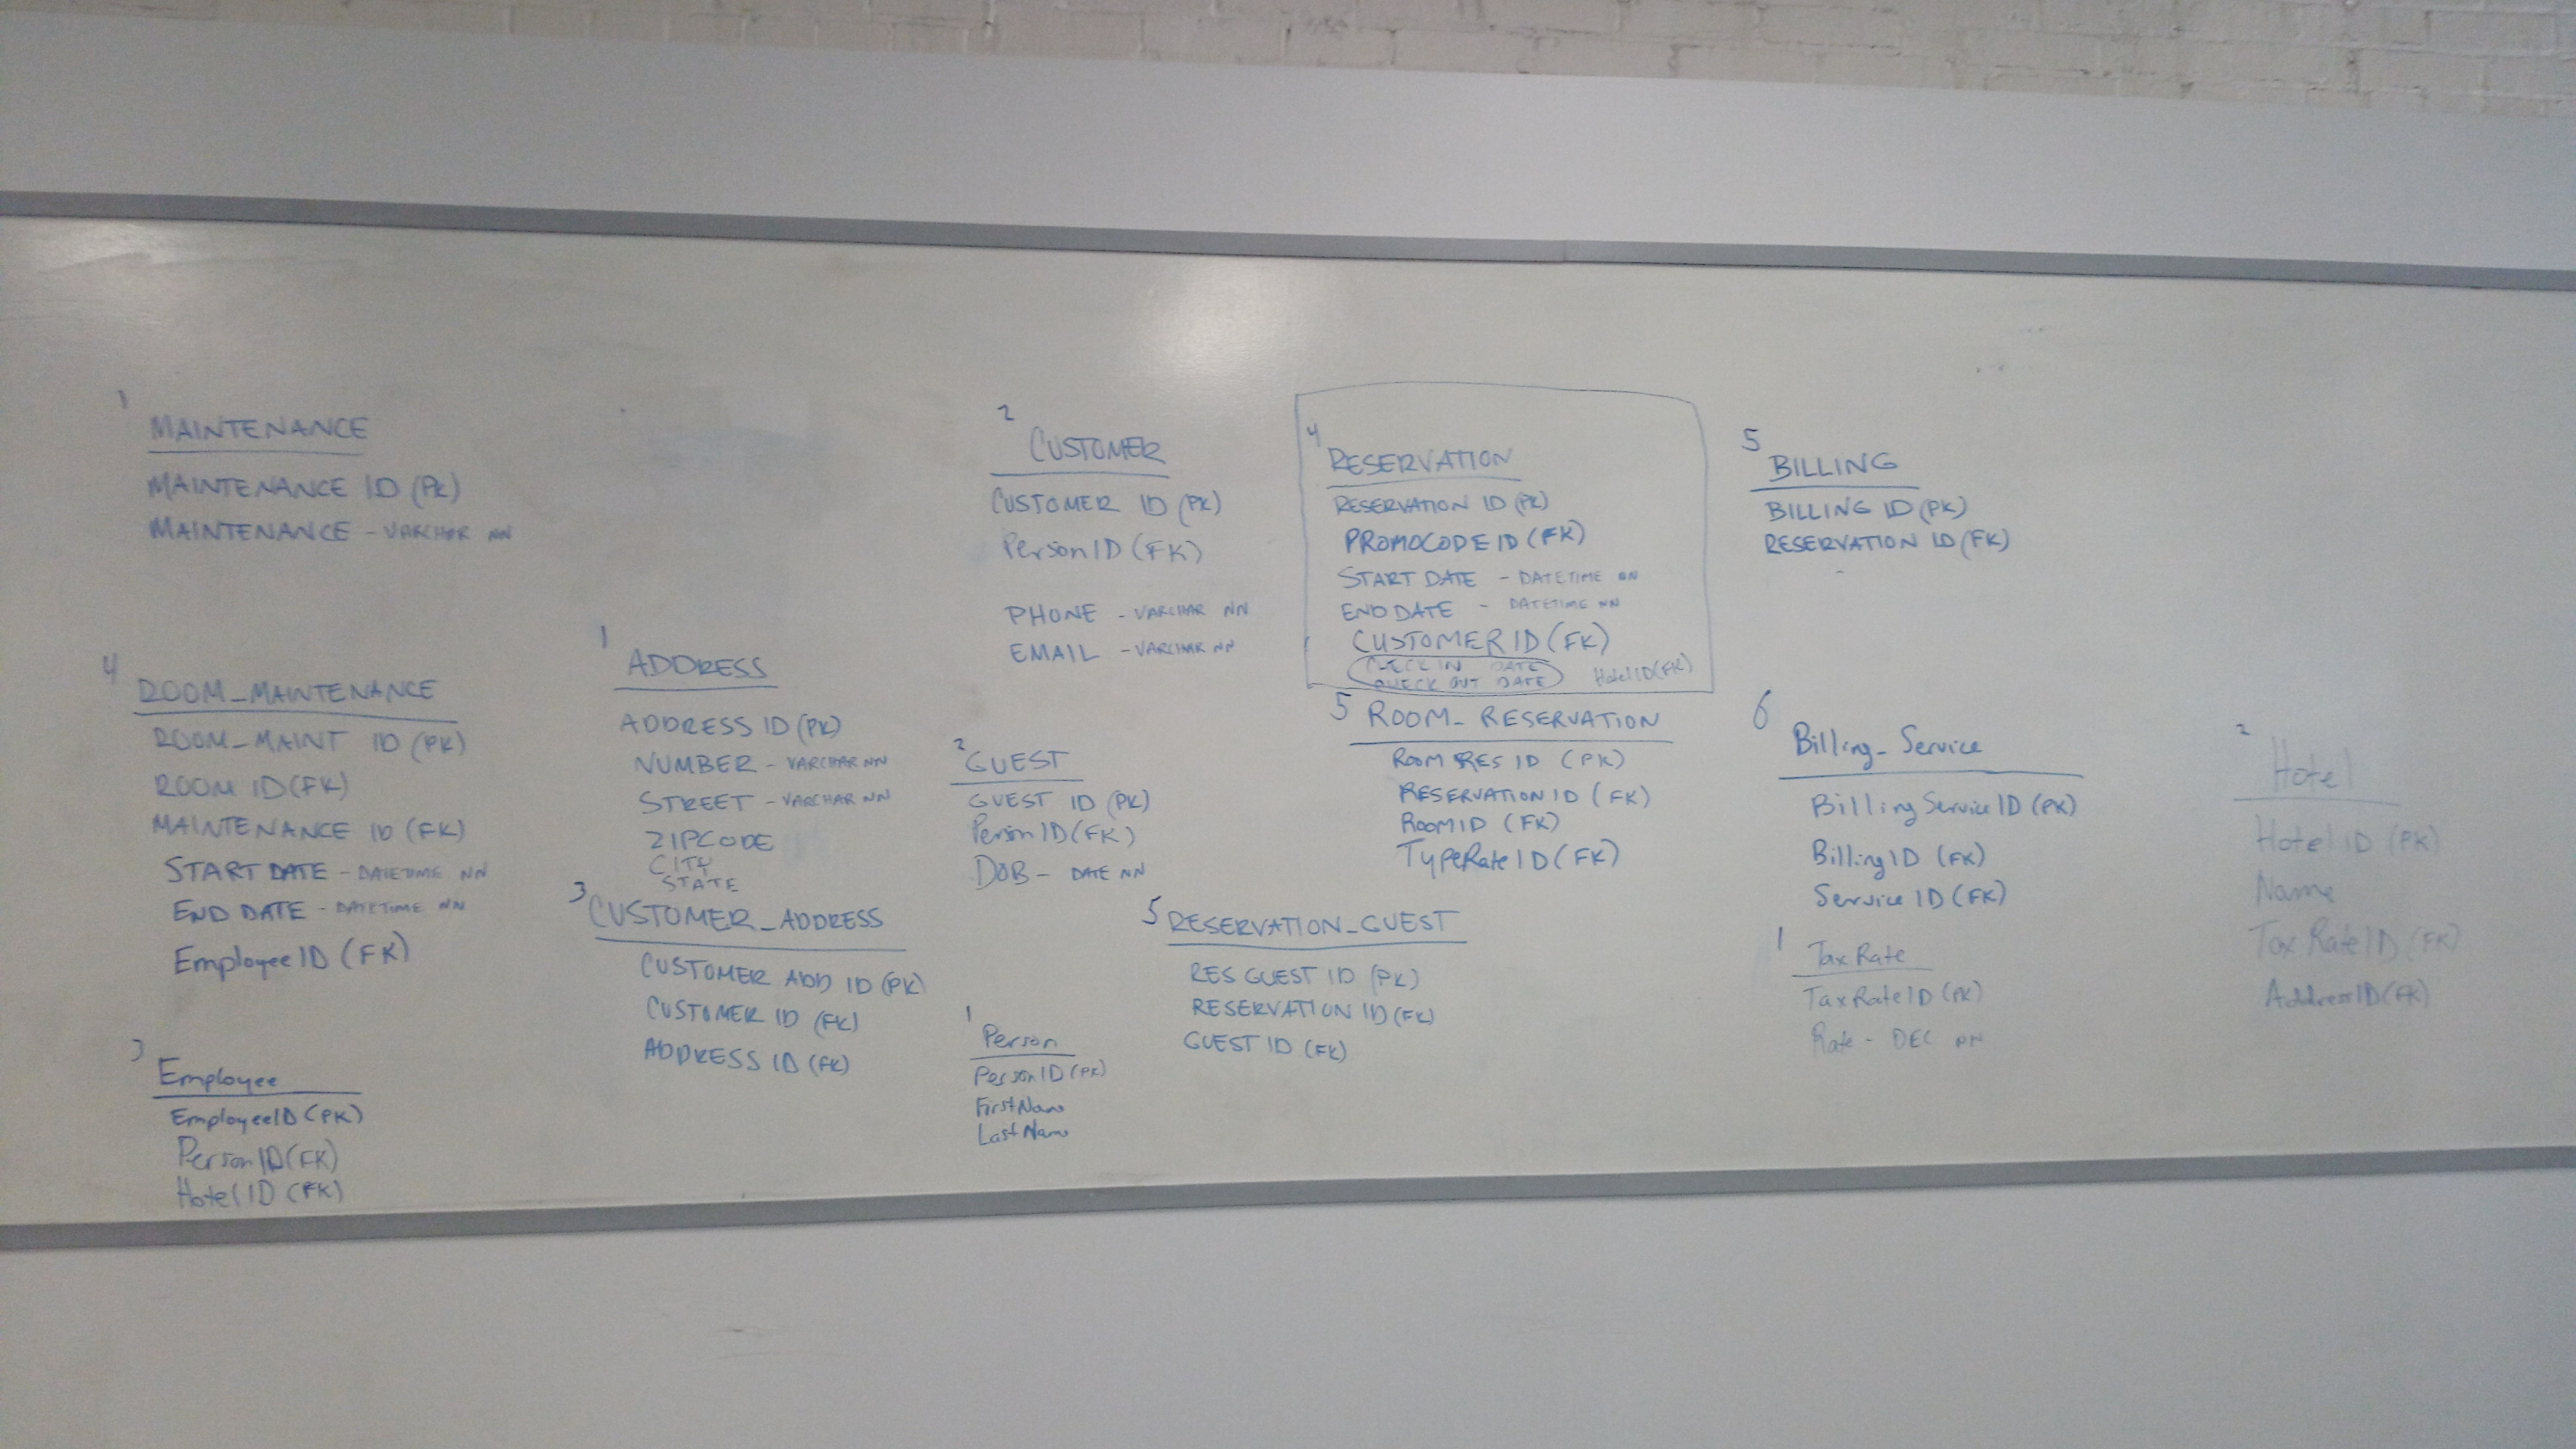 1
MAINTENANCE
MAINTENANCE ID (PK)
MAINTENANCE - VARCHAR NN
4
ROOM_MAINTENANCE
ROOM_MAINT ID (PK)
ROOM ID (FK)
MAINTENANCE ID (FK)
START DATE - DATETIME NN
END DATE - DATETIME NN
EmployeeID (FK)
3
Employee
EmployeeID (PK)
PersonID (FK)
HotelID (FK)
1
ADDRESS
ADDRESS ID (PK)
NUMBER - VARCHAR NN
STREET - VARCHAR NN
ZIPCODE
CITY
STATE
3
CUSTOMER_ADDRESS
CUSTOMER ADD ID (PK)
CUSTOMER ID (FK)
ADDRESS ID (FK)
2
CUSTOMER
CUSTOMER ID (PK)
PersonID (FK)
PHONE - VARCHAR NN
EMAIL - VARCHAR NN
2
GUEST
GUEST ID (PK)
PersonID (FK)
DOB - DATE NN
1
Person
PersonID (PK)
FirstName
LastName
4
RESERVATION
RESERVATION ID (PK)
PROMOCODE ID (FK)
START DATE - DATETIME NN
END DATE - DATETIME NN
CUSTOMER ID (FK)
CHECK IN DATE
CHECK OUT DATE
HotelID (FK)
5
ROOM_RESERVATION
ROOM RES ID (PK)
RESERVATION ID (FK)
ROOM ID (FK)
TypeRateID (FK)
5
RESERVATION_GUEST
RES GUEST ID (PK)
RESERVATION ID (FK)
GUEST ID (FK)
5
BILLING
BILLING ID (PK)
RESERVATION ID (FK)
6
Billing_Service
BillingServiceID (PK)
BillingID (FK)
ServiceID (FK)
1
TaxRate
TaxRateID (PK)
Rate - DEC NN
2
Hotel
HotelID (PK)
Name
TaxRateID (FK)
AddressID (FK)